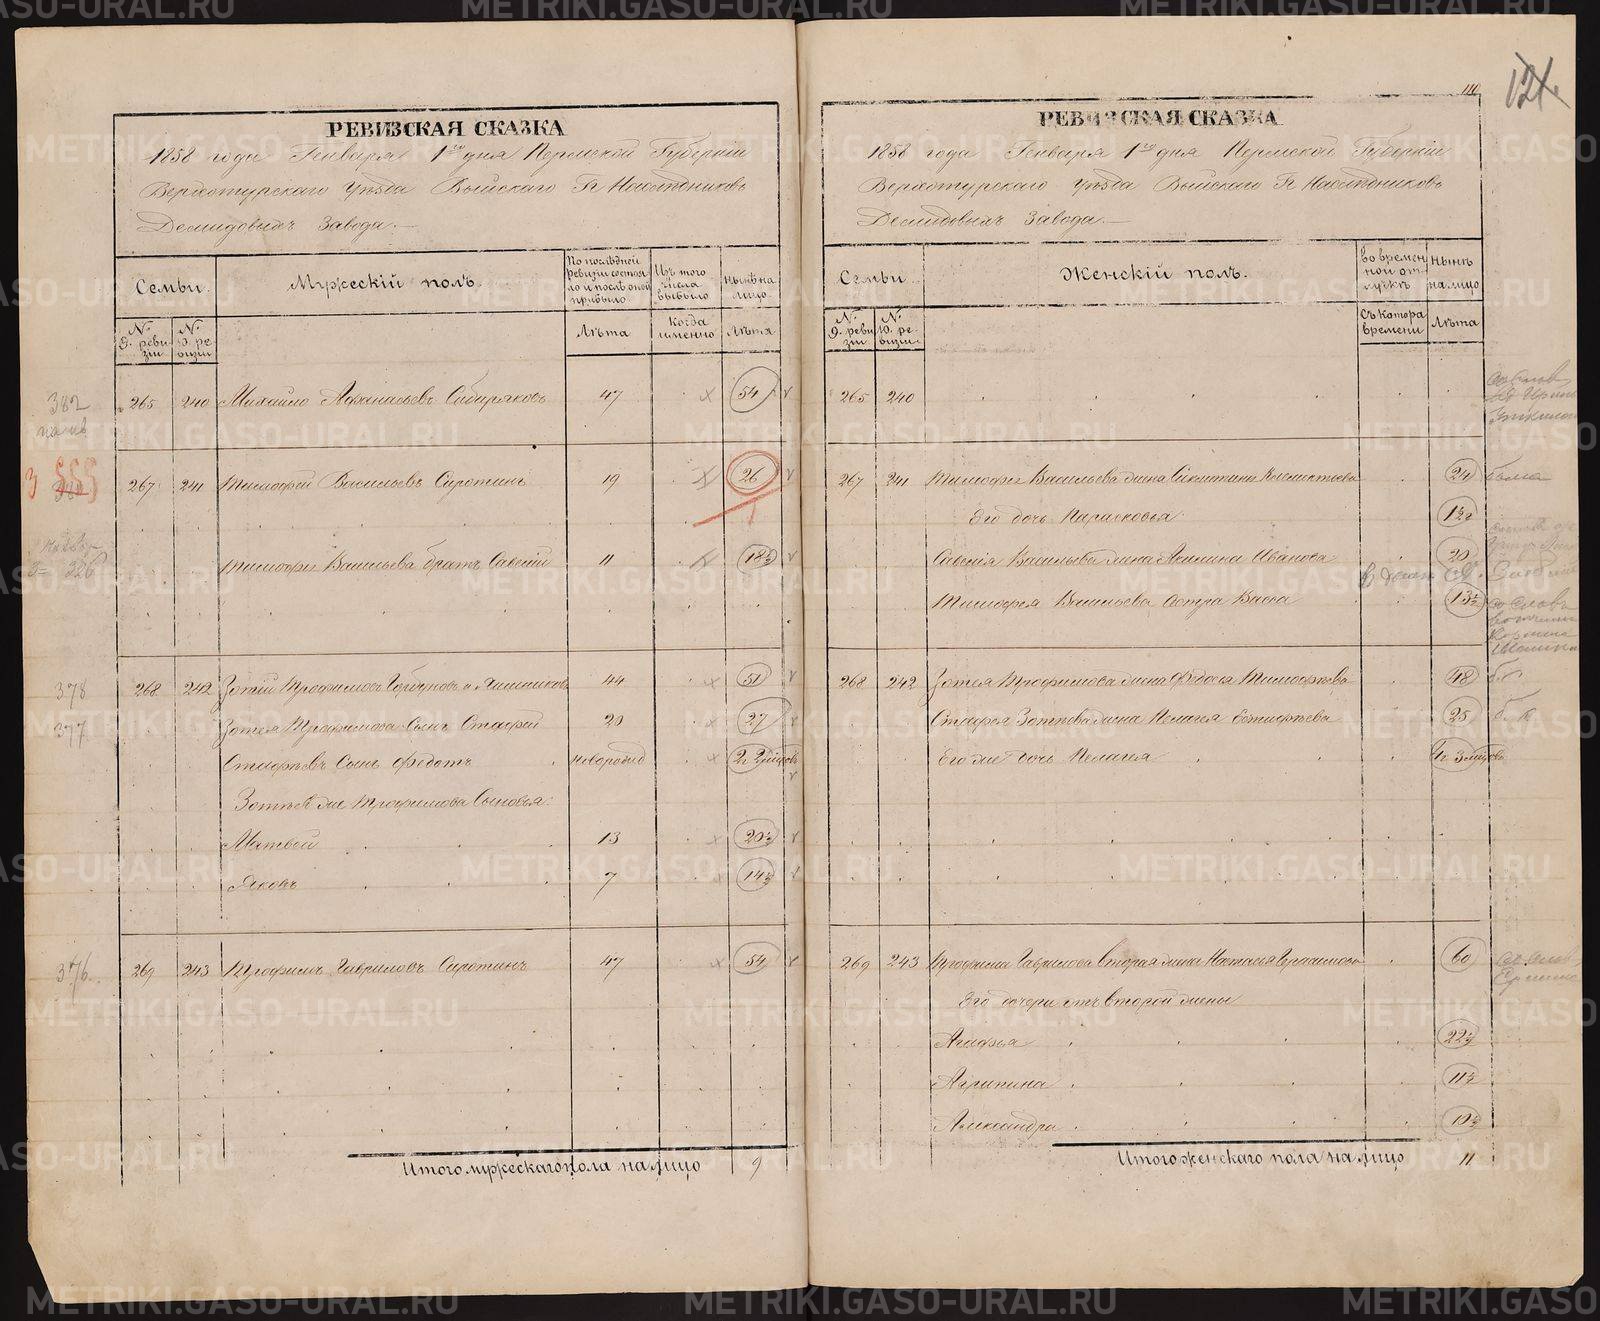 111
121.
РЕВИЗСКАЯ СКАЗКА
1858 года Генваря 1го дня Пермской Губерніи
Верхотурскаго Уѣзда Выйскаго Гг Наслѣдниковъ
Демидовыхъ Завода.
Семьи.
Мужескій полъ.
По послѣдней ревизіи состояло и послѣ оной прибыло
Изъ того числа выбыло
Нынѣ на лицо.
№. 9. ревизіи
№. 10. ревизіи
Лѣта
Когда именно
Лѣта
382
265 240 Михайло Аѳанасьевъ Сибиряковъ 47 54
267 241 Тимофей Васильевъ Сиротинъ 19 26
326 Тимофея Васильева братъ Савелій 11 18½
378 268 242 Зотей Трофимовъ Горбуновъ и 44 51
377 Зотея Трофимова Сынъ Стафей 20 27
Стафѣевъ Сынъ Федотъ новорожд
Зотѣя же Трофимова Сыновья:
Матвей 13 20½
Яковъ 7 14½
376. 269 243 Трофимъ Гавриловъ Сиротинъ 47 54
Итого мужескаго пола на лицо 9
РЕВИЗСКАЯ СКАЗКА
1858 года Генваря 1го дня Пермской Губерніи
Верхотурскаго Уѣзда Выйскаго Гг Наслѣдниковъ
Демидовыхъ Завода.
Семьи.
Женскій полъ.
Во временной отлучкѣ
Нынѣ на лицо
№. 9. ревизіи
№. 10. ревизіи.
Съ котора времени
Лѣта
265 240
267 241 Тимофея Васильева жена 24
Его дочь Парасковья 1½
Савелія Васильева жена Акилина Иванова 20
Тимофея Васильева Сестра Васса 13½
268 242 Зотея Трофимова жена Федосья Тимофѣева 48
Стафея Зотѣева жена Пелагея 25
Его же дочь Пелагея
269 243 Трофима Гаврилова вторая жена Наталья 60
Его дочери отъ второй жены
Агафья 22½
Агрипина 11½
Александра 10½
Итого женскаго пола на лицо 11
METRIKI.GASO-URAL.RU